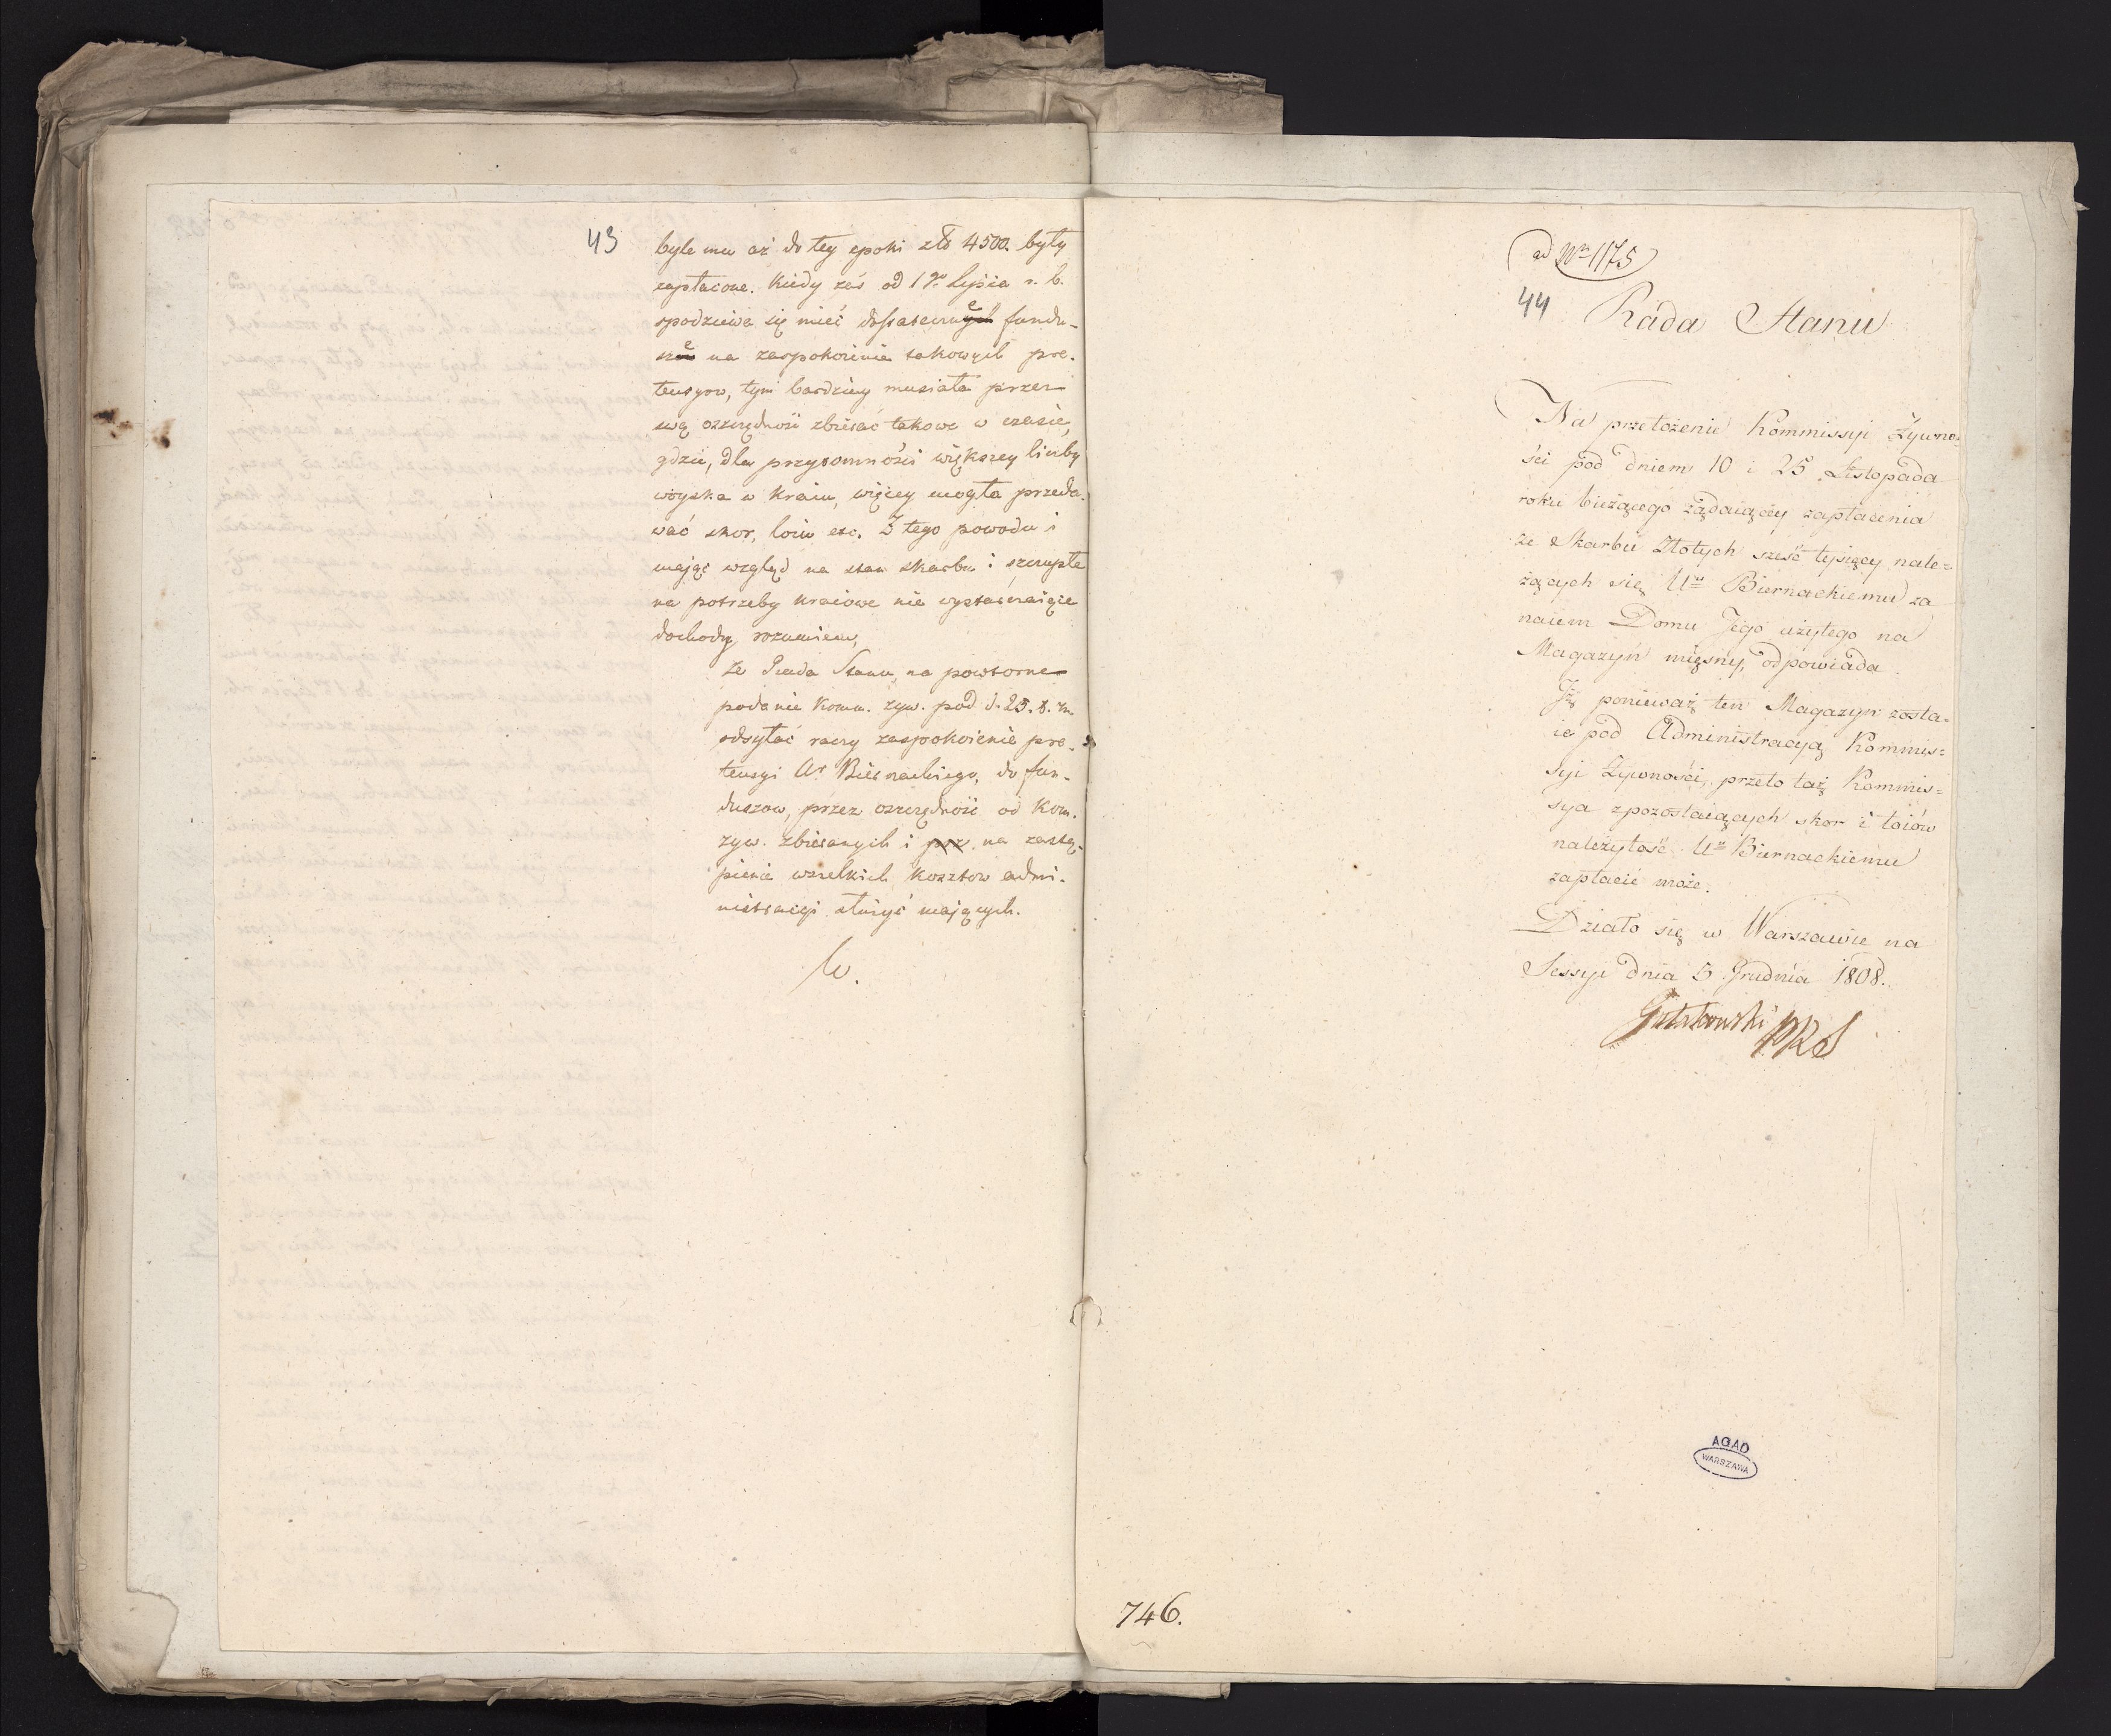 43
byle mu aż do tey epoki złt 4500. były
zapłacone. Kiedy zaś od 1go Lipca r. b.
spodziewa się mieć dostateczne fundu-
sze na zaspokoienie takowych pre-
tensyow, tym bardziey musiała przez
swą oszczędność zbierać takowe w czasie,
gdzie, dla przytomności większey liczby
woyska w kraiu, więcey mogła przeda-
wać skor, łoiu etc. Z tego powodu i
mając wzgląd na stan skarbu i szczupłe
na potrzeby kraiowe nie wystarczaiące
dochody, rozumiem,
że Rada Stanu, na powtorne
podanie Komm. żyw. pod d. 25. x. m.
odsyłać raczy zaspokoienie pre-
tensyi Ur Biernackiego, do fun-
duszow, przez oszczędność od Kom.
żyw. zbieranych i na zastą-
pienie wszelkich kosztow admi-
nistracyi służyć mających.
ad Nrum 1175
44
Rada Stanu
Na przełożenie Kommissyi Żywno-
ści pod dniem 10 i 25 Listopada
roku bieżącego żądaiącéy zapłacenia
ze Skarbu Złotych sześć tysięcy nale=
żących się Ur Biernackiemu za
naiem Domu Jego użytego na
Magazyn mięsny, odpowiada.
Iż ponieważ ten Magazyn zosta=
ie pod Administracyą Kommis=
syi Żywności, przeto taż Kommis=
sya z pozostaiących skor i łoiów
należytość Ur Biernackiemu
zapłacić może.
Działo się w Warszawie na
Sessyi dnia 5 Grudnia 1808.
Gutakowski PRS
AGAD
WARSZAWA
746.